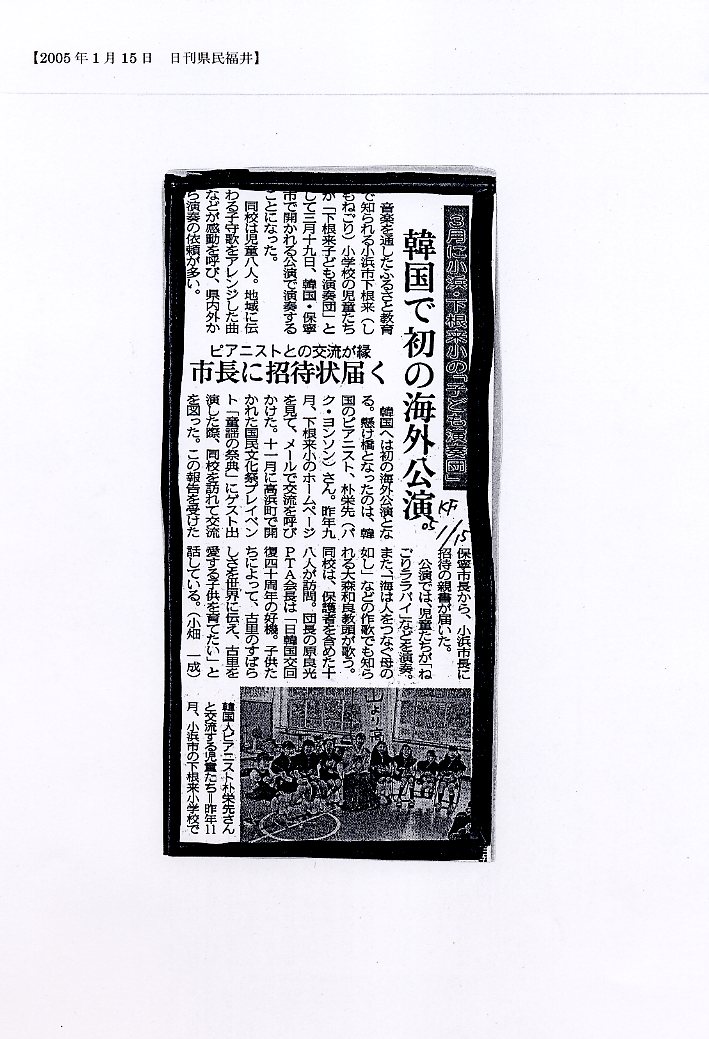 【2005年1月15日　日刊県民福井】
3月に小浜・下根来小の「子ども演奏団」
韓国で初の海外公演
KF
05 1/15
音楽を通したふるさと教育
で知られる小浜市下根来（し
もねごり）小学校の児童たち
が「下根来子ども演奏団」と
して三月十九日、韓国・保寧
市で開かれる公演で演奏する
ことになった。
同校は児童八人。地域に伝
わる子守歌をアレンジした曲
などが感動を呼び、県内外か
ら演奏の依頼が多い。
ピアニストとの交流が縁
市長に招待状届く
韓国へは初の海外公演とな
る。懸け橋となったのは、韓
国のピアニスト、朴栄先（パ
ク・ヨンソン）さん。昨年九
月、下根来小のホームページ
を見て、メールで交流を呼び
かけた。十一月に高浜町で開
かれた国民文化祭プレイベン
ト「童謡の祭典」にゲスト出
演した際、同校を訪れて交流
を図った。この報告を受けた
保寧市長から、小浜市長に
招待の親書が届いた。
公演では、児童たちが「ね
ごりララバイ」などを演奏。
また、「海は人をつなぐ母の
如し」などの作歌でも知ら
れる大森和良教頭が歌う。
同校は、保護者を含めた十
八人が訪問。団長の原良光
PTA会長は「日韓国交回
復四十周年の好機。子供た
ちによって、古里のすばら
しさを世界に伝え、古里を
愛する子供を育てたい」と
話している。（小畑　一成）
韓国人ピアニスト朴栄先さん
と交流する児童たち＝昨年11
月、小浜市の下根来小学校で